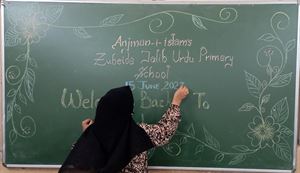 Anjman-i-Islam's
Zubeida Talib Urdu Primary
School
15 June 2027
Welcome Back To